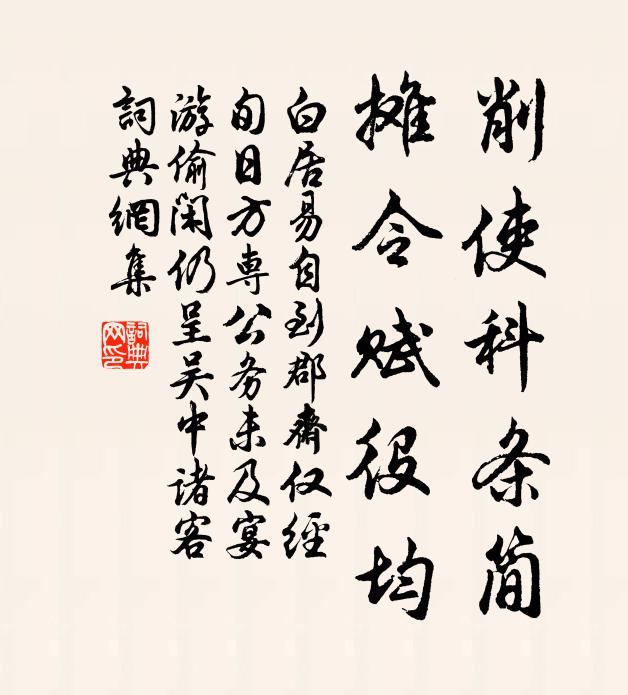 削使科条简
摊令赋役均
白居易自到郡齋仅經
旬日方専公务未及宴
游偷闲仍呈吴中诸客
詞典網集
詞典
网印